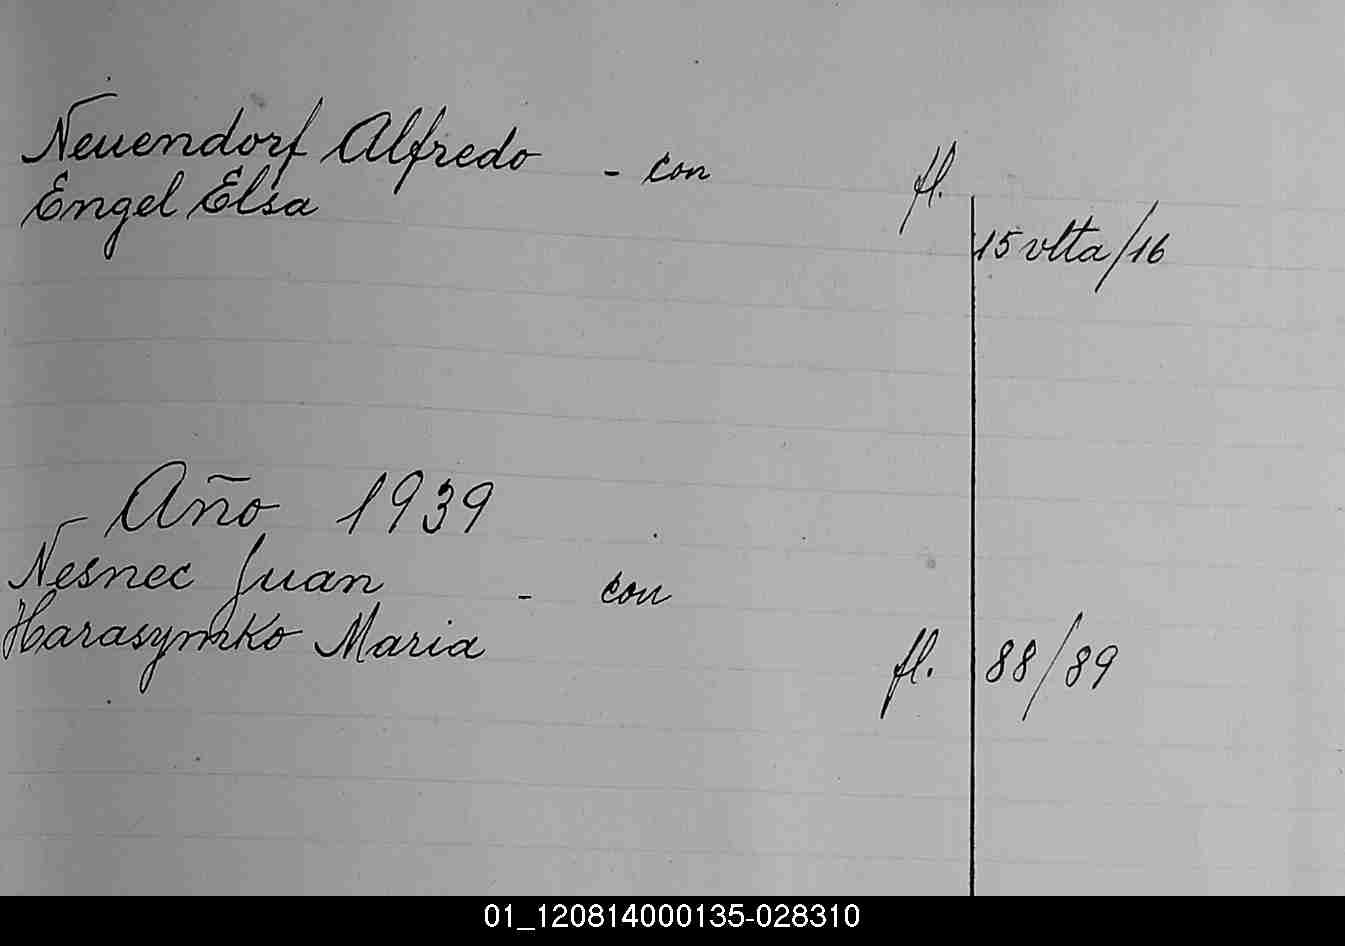 Neuendorf Alfredo - con fl.
Engel Elsa
15 vlta/16
Año 1939
Nesnec Juan - con
Harasymko Maria fl. 88/89
01_120814000135-028310